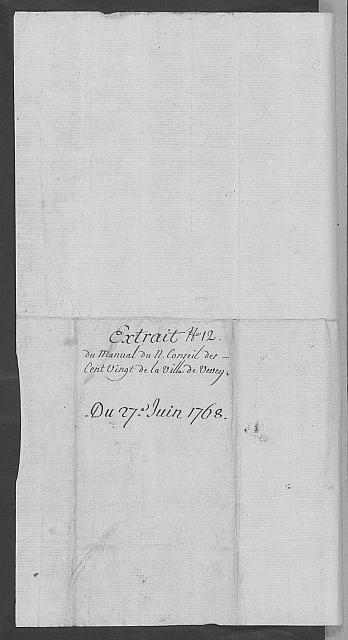 Extrait No 12.
du Manual du N. Conseil des
Cent Vingt de la Ville de Vevey.
Du 27e Juin 1768.